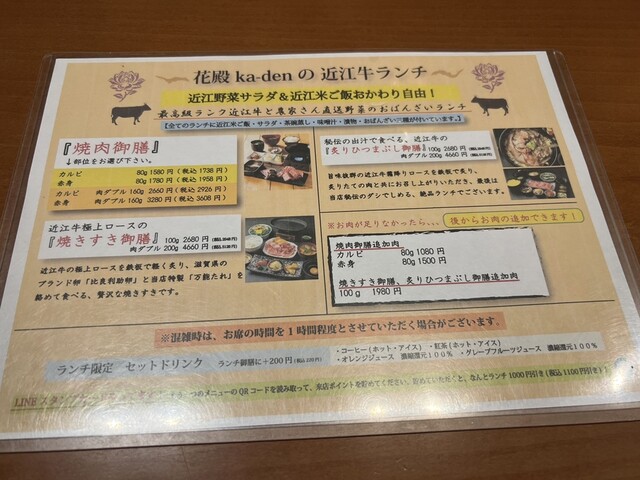 花殿 ka-den の 近江牛ランチ
近江野菜サラダ＆近江米ご飯おかわり自由！
最高級ランク近江牛と農家さん直送野菜のおばんざいランチ
【全てのランチに近江米ご飯・サラダ・茶碗蒸し・味噌汁・漬物・おばんざい 種が付いています。】
『焼肉御膳』
↓部位をお選び下さい。
カルビ 80g 1580 円（税込 1738 円）
赤身 80g 1780 円（税込 1958 円）
カルビ 肉ダブル 160g 2660 円（税込 2926 円）
赤身 肉ダブル 160g 3280 円（税込 3608 円）
近江牛極上ロースの
『焼きすき御膳』 100g 2680 円
肉ダブル 200g 4660 円
近江牛の極上ロースを鉄板で軽く炙り、滋賀県の
ブランド卵「比良利助卵」と当店特製「万能たれ」を
絡めて食べる、贅沢な焼きすきです。
秘伝の出汁で食べる、近江牛の
『炙りひつまぶし御膳』 100g 2680 円
肉ダブル 200g 4660 円
旨味抜群の近江牛霜降りロースを鉄板で炙り、
炙りたての肉と共にお召し上がりいただき、最後は
当店秘伝のダシでしめる、絶品ランチでございます。
※お肉が足りなかったら、、、 後からお肉の追加できます！
焼肉御膳追加肉
カルビ 80g 1080 円
赤身 80g 1500 円
焼きすき御膳、炙りひつまぶし御膳追加肉
100 g 1980 円
※混雑時は、お席の時間を 1 時間程度とさせていただく場合がございます。
ランチ限定 セットドリンク ランチ御膳に＋200 円
・コーヒー（ホット・アイス） ・紅茶（ホット・アイス）
・オレンジジュース 濃縮還元 100％ ・グレープフルーツジュース 濃縮還元 100％
LINE スタンプカード つのメニューの QR コードを読み取って、来店ポイントを貯めてください。貯めていただくと、なんとランチ 1000 円引き（税込 1100 円引き）